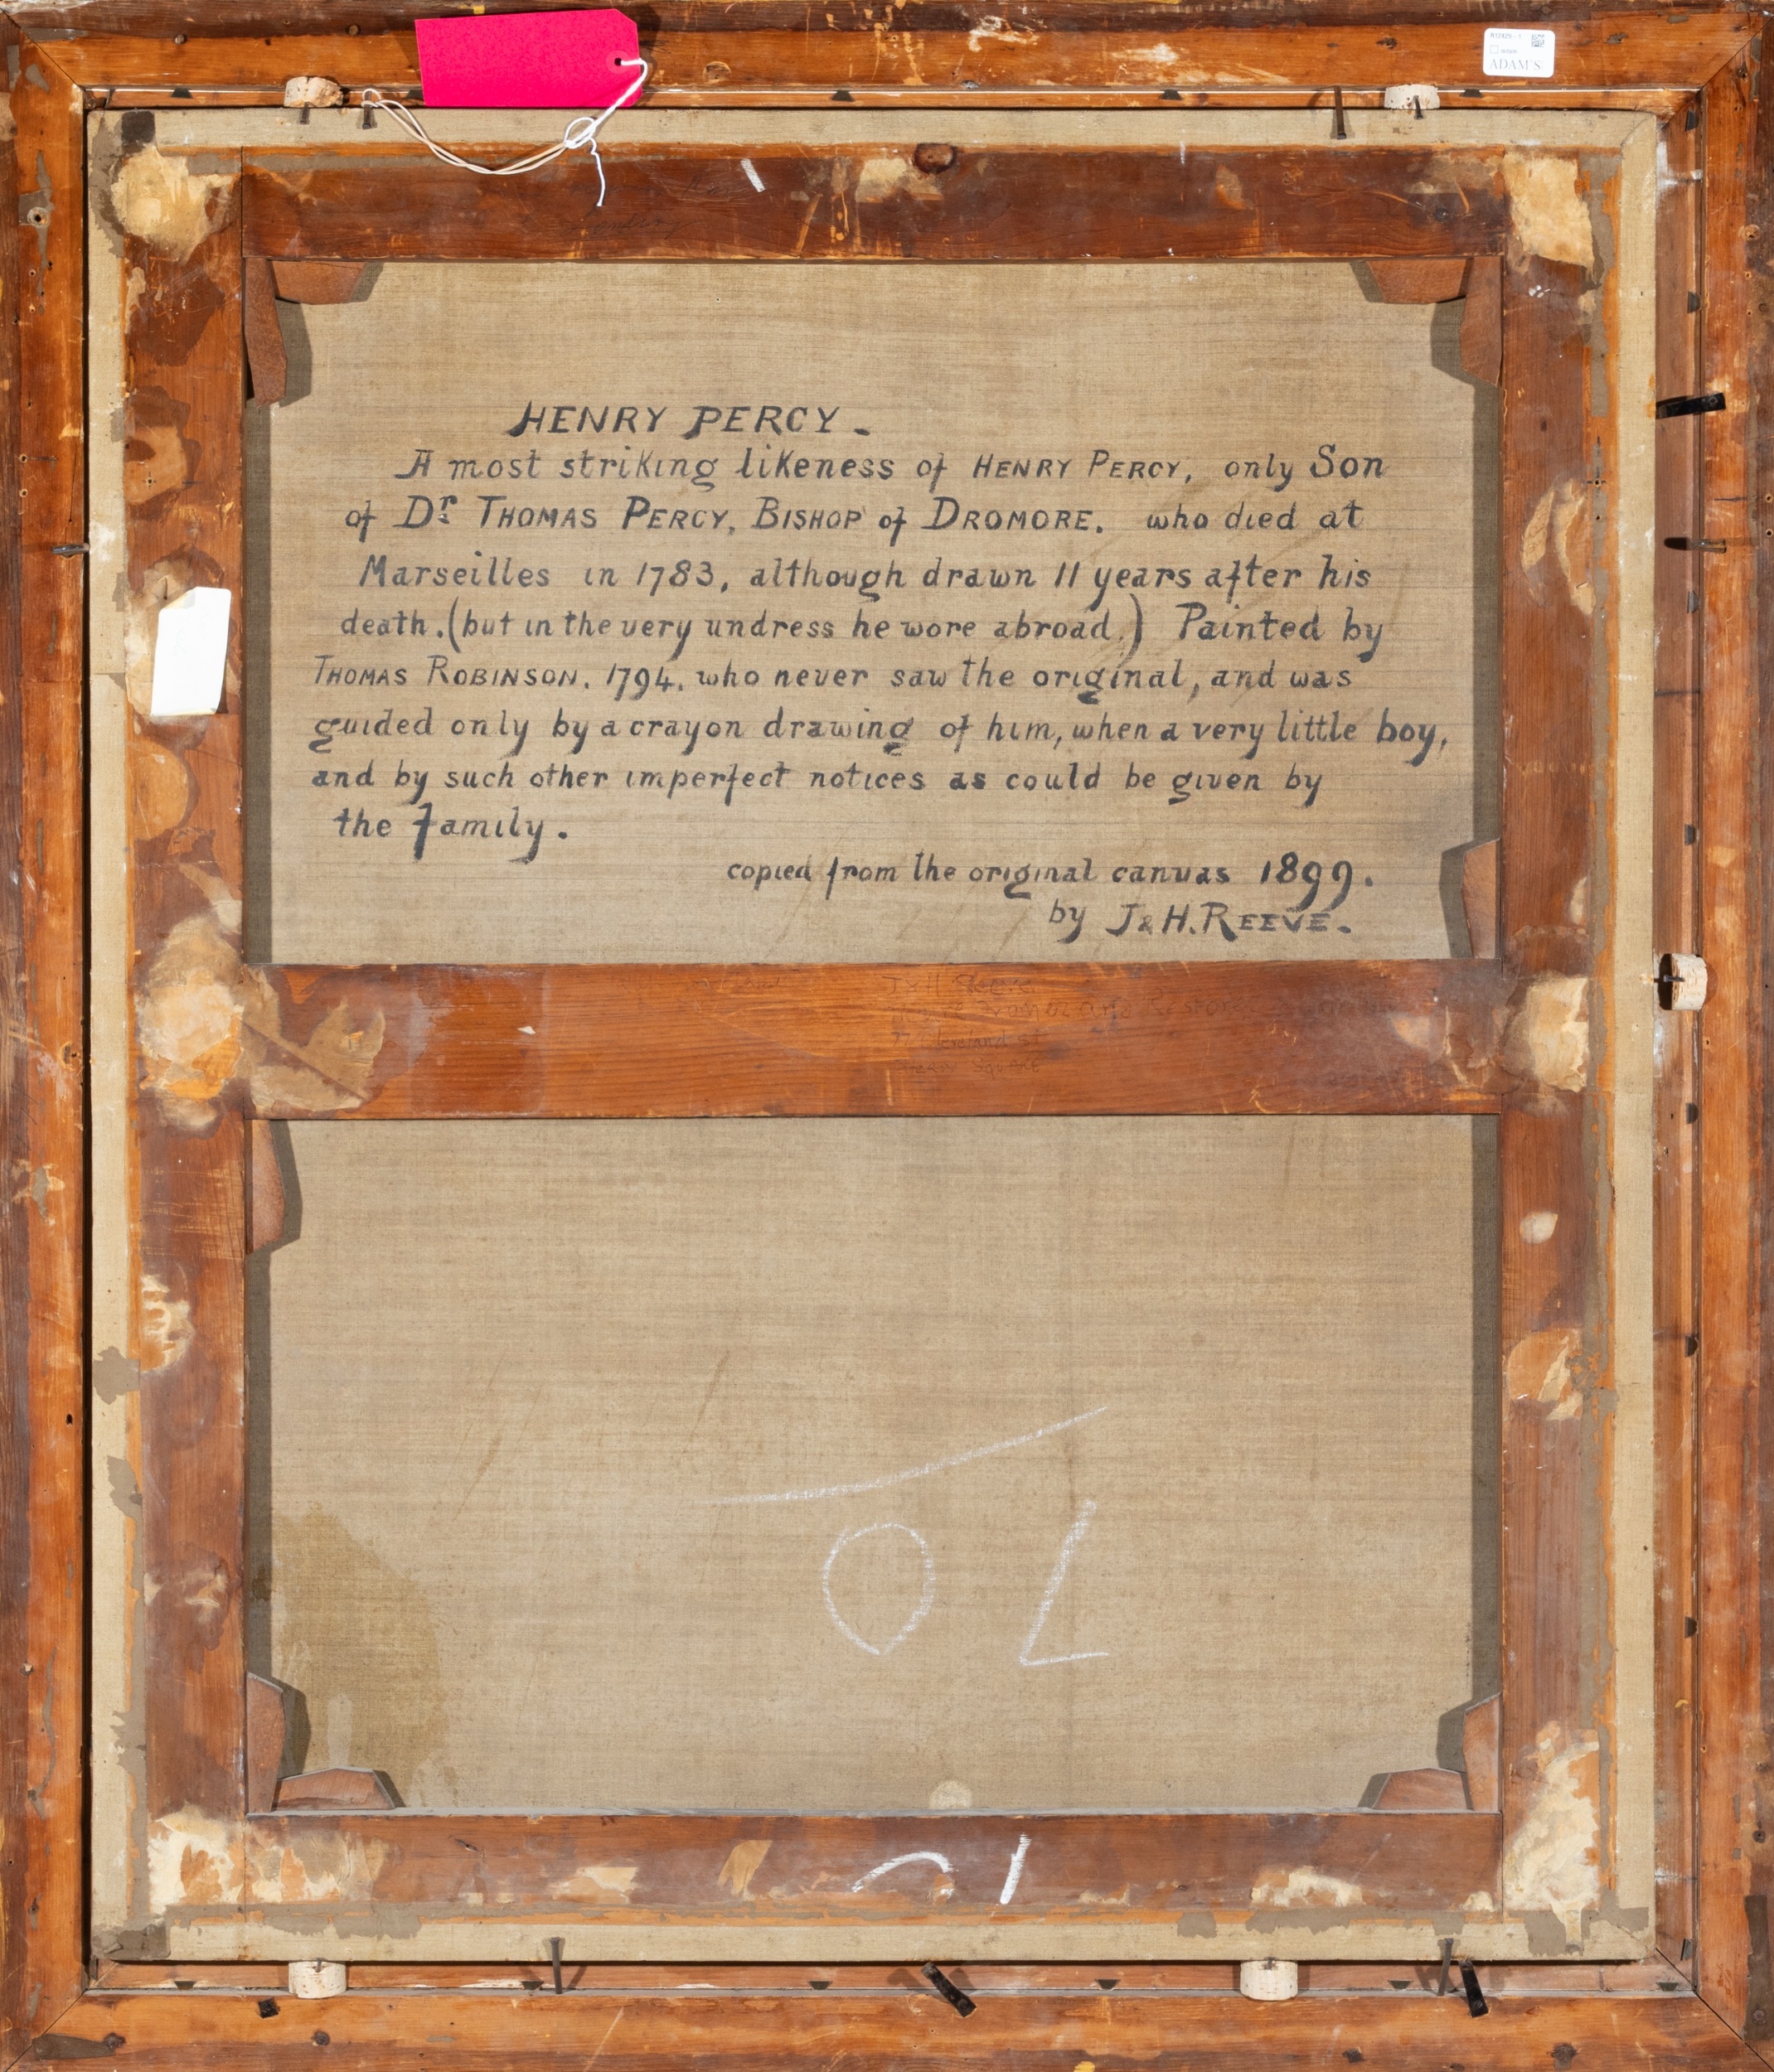 ADAM'S
HENRY PERCY.
A most striking likeness of HENRY PERCY, only Son
of Dr THOMAS PERCY, BISHOP of DROMORE. who died at
Marseilles in 1783, although drawn 11 years after his
death. (but in the very undress he wore abroad.) Painted by
THOMAS ROBINSON. 1794. who never saw the original, and was
guided only by a crayon drawing of him, when a very little boy,
and by such other imperfect notices as could be given by
the Family.
copied from the original canvas 1899.
by J & H. REEVE.
J & H Reeve
and Restorers
Cleveland St
Square